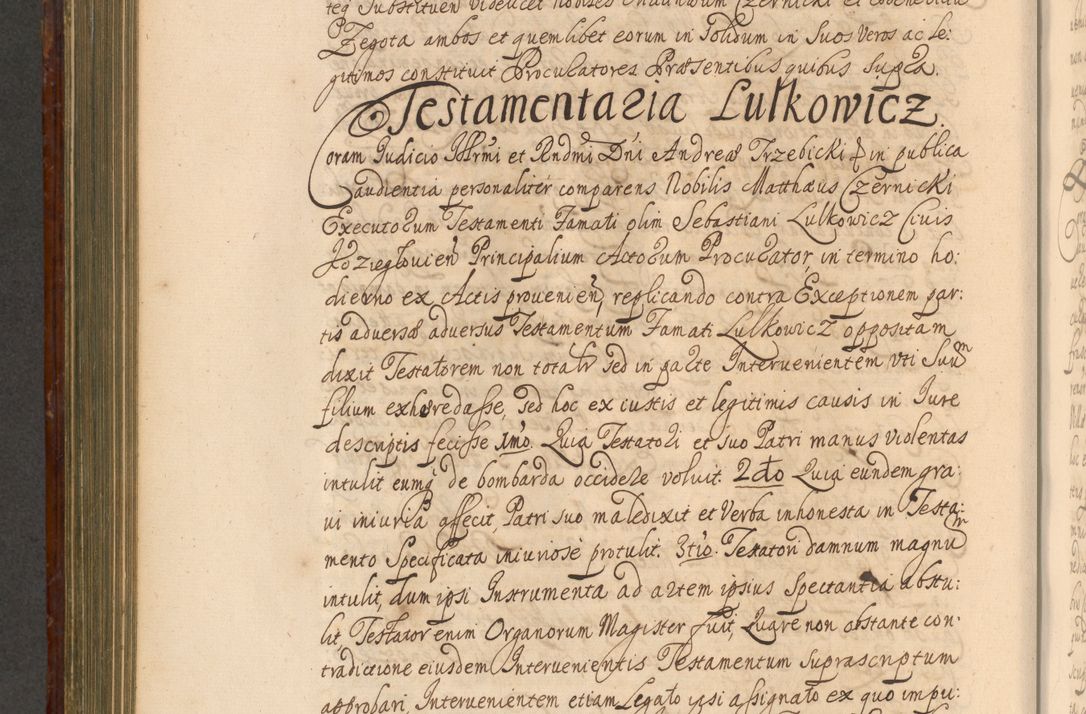 teq Substituen videlicet Nobiles Czernicki et
Zegota ambos et quemlibet eorum in Solidum in Suos Veros ac le:
gitimos constituit Procuratores Præsentibus quibus supra.
Testamentaria Lulkowicz
Coram Judicio Illrmi et Rndmi Dni Andreæ Trzebicki in publica
audientia personaliter comparens Nobilis Matthæus Czernicki
Executorum Testamenti Famati olim Sebastiani Lulkowicz Civis
Principalium Actorum Procurator, in termino ho:
dierno ex Actis provenien, replicando contra Exceptionem par:
tis adversæ adversus Testamentum Famati Lulkowicz oppositam
dixit Testatorem non totalr sed in parte Intervenientem uti Suũm
filium exhæredasse, sed hoc ex iustis et legitimis causis in Jure
descriptis fecisse 1mo. Quia Testatori et suo Patri manus violentas
intulit eumq de bombarda occidere voluit. 2do Quia eundem gra:
vi iniuria affecit, Patri suo maledixit et Verba inhonesta in Testa:
mento Specificata iniuriose protulit. 3tio. Testatori damnum magnũm
intulit, dum ipsi Instrumenta ad artem ipsius Spectantia abstu:
lit Testator enim Organorum Magister fuit, Quare non obstante con:
tradictione eiusdem Intervenientis Testamentum suprascriptum
approbari, Intervenientem etiam Legato ipsi assignato ex quo impu: